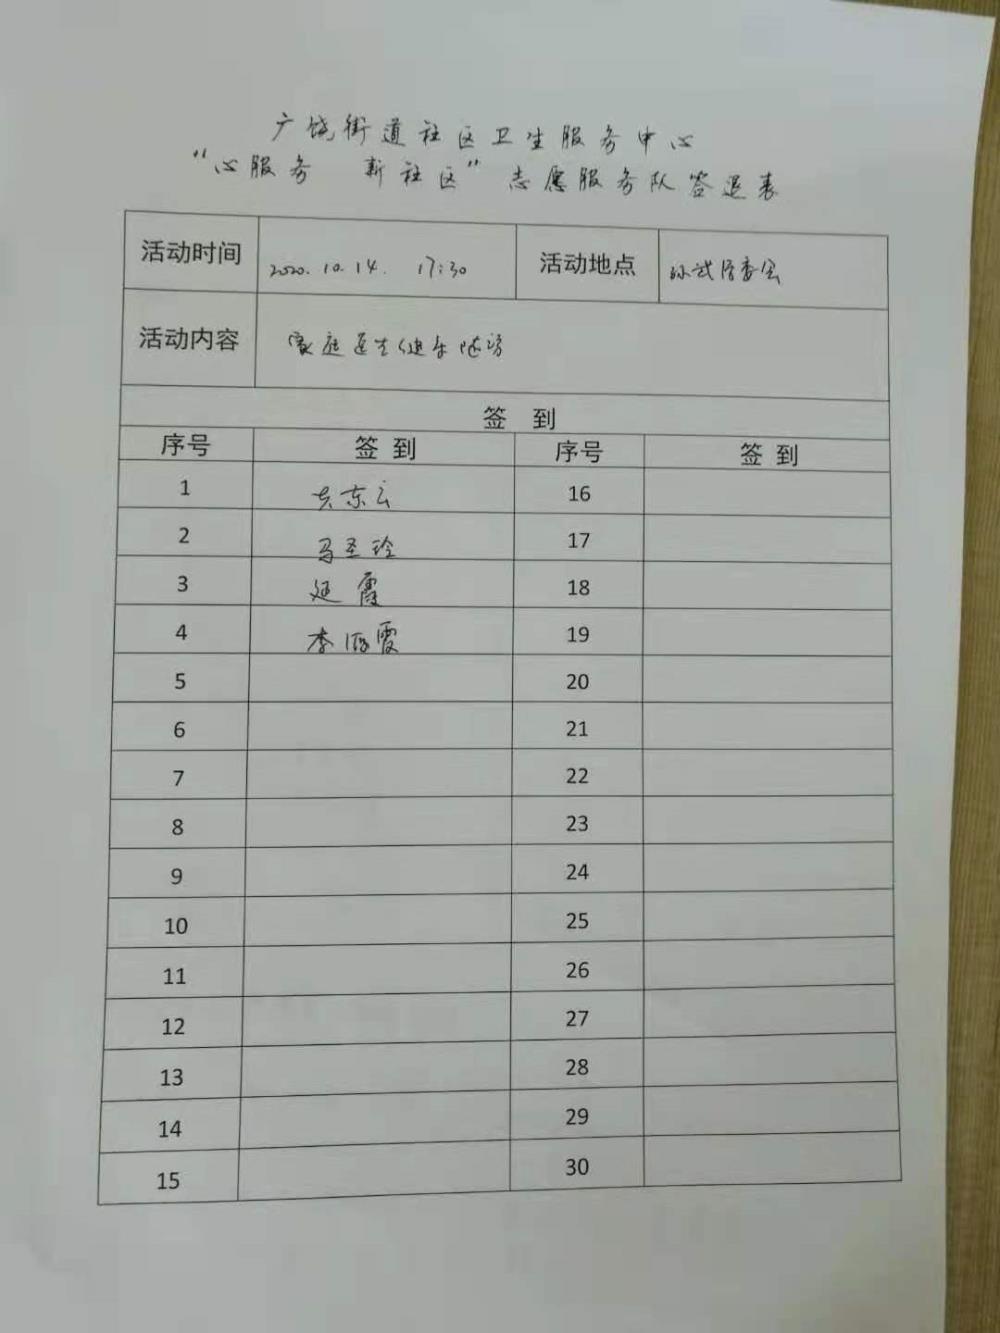 广饶街道社区卫生服务中心
“心服务 新社区”志愿服务队签退表
活动时间 2020.10.14. 17:30 活动地点 孙武居委会
活动内容 家庭医生健康随访
签 到
序号 签到 序号 签到
1 东云 16
2 马圣玲 17
3 延霞 18
4 李海霞 19
5 20
6 21
7 22
8 23
9 24
10 25
11 26
12 27
13 28
14 29
15 30